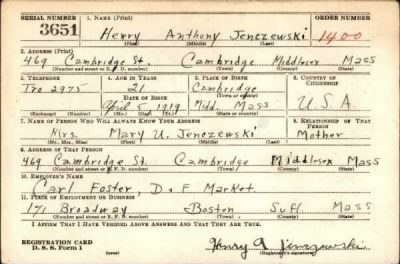 SERIAL NUMBER 1. NAME (Print) ORDER NUMBER
3651 Henry Anthony Jenczewski 1400
(First) (Middle) (Last)
2. ADDRESS (Print)
469 Cambridge St. Cambridge Middlesex Mass
(Number and street or R. F. D. number) (Town) (County) (State)
3. TELEPHONE 4. AGE IN YEARS 5. PLACE OF BIRTH 6. COUNTRY OF CITIZENSHIP
Tro 2975 21 Cambridge
DATE OF BIRTH (Town or county)
April 5, 1919 Midd. Mass U S A
(Exchange) (Number) (Mo.) (Day) (Yr.) (State or country)
7. NAME OF PERSON WHO WILL ALWAYS KNOW YOUR ADDRESS 8. RELATIONSHIP OF THAT PERSON
Mrs. Mary U. Jenczewski Mother
(Mr., Mrs., Miss) (First) (Middle) (Last)
9. ADDRESS OF THAT PERSON
469 Cambridge St. Cambridge Middlesex Mass
(Number and street or R. F. D. number) (Town) (County) (State)
10. EMPLOYER'S NAME
Carl Foster, D + F Market
11. PLACE OF EMPLOYMENT OR BUSINESS
171 Broadway Boston Suff Mass
(Number and street or R. F. D. number) (Town) (County) (State)
I AFFIRM THAT I HAVE VERIFIED ABOVE ANSWERS AND THAT THEY ARE TRUE.
REGISTRATION CARD
D. S. S. Form 1 (over) Henry A Jenczewski
(Registrant's signature)